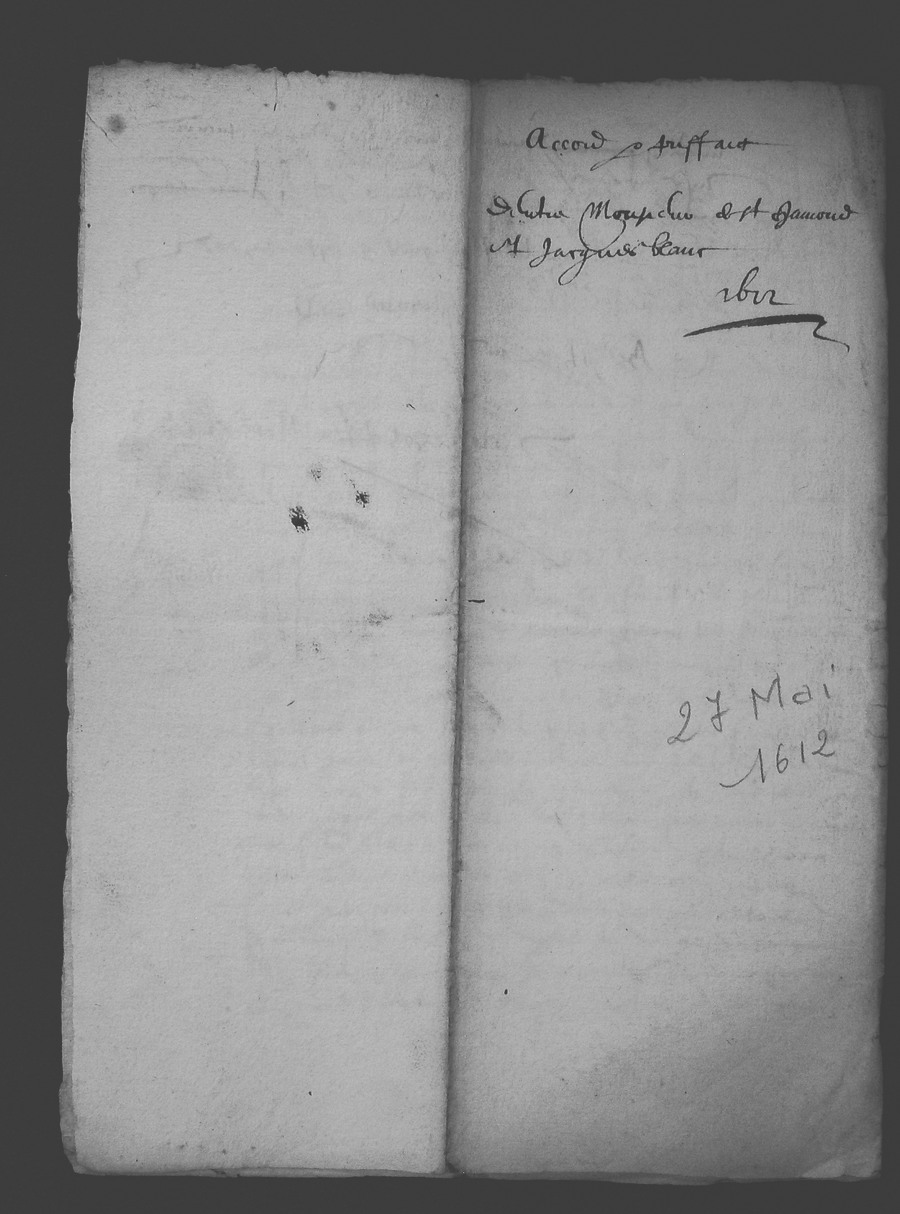 Accord
d'entre Monsieur de St Chamond
et Jacques blanc
1612
27 Mai
1612